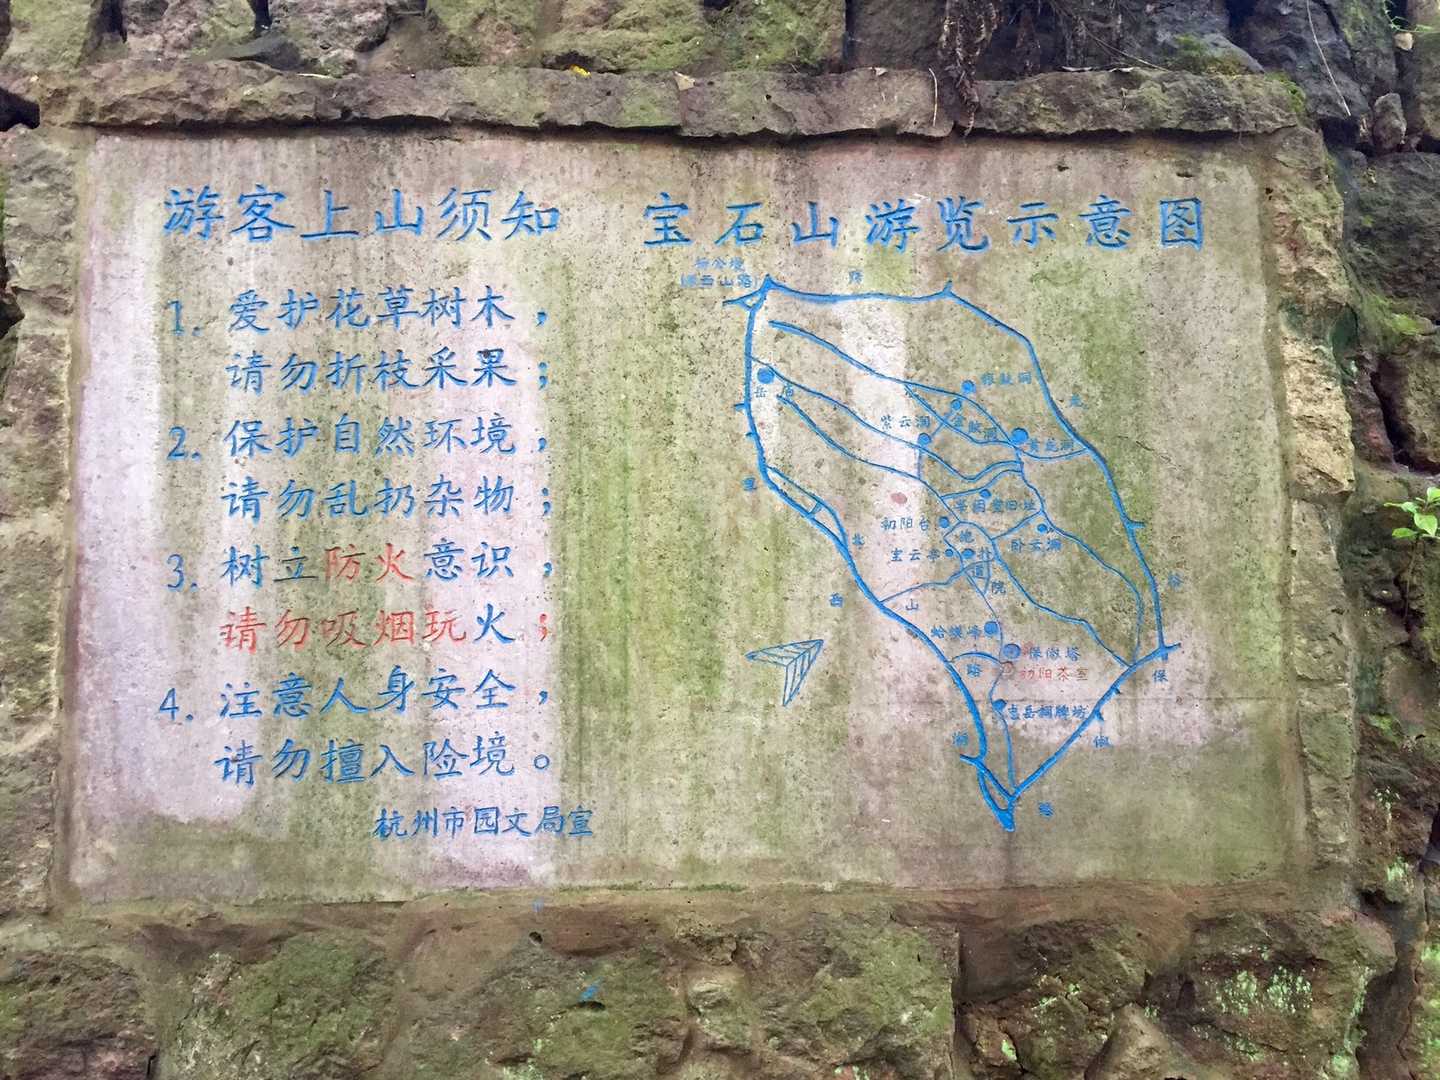 游客上山须知
1. 爱护花草树木，
请勿折枝采果；
2. 保护自然环境，
请勿乱扔杂物；
3. 树立防火意识，
请勿吸烟玩火；
4. 注意人身安全，
请勿擅入险境。
杭州市园文局宣
宝石山游览示意图
杨公堤
西山路
路
岳庙
紫云洞
金鼓洞
黄龙洞
龙
里
北
西
山
路
湖
初阳台
宝云亭
抱朴道院
卧云洞
蛤蟆峰
保俶塔
初阳茶室
志岳祠牌坊
保
俶
路